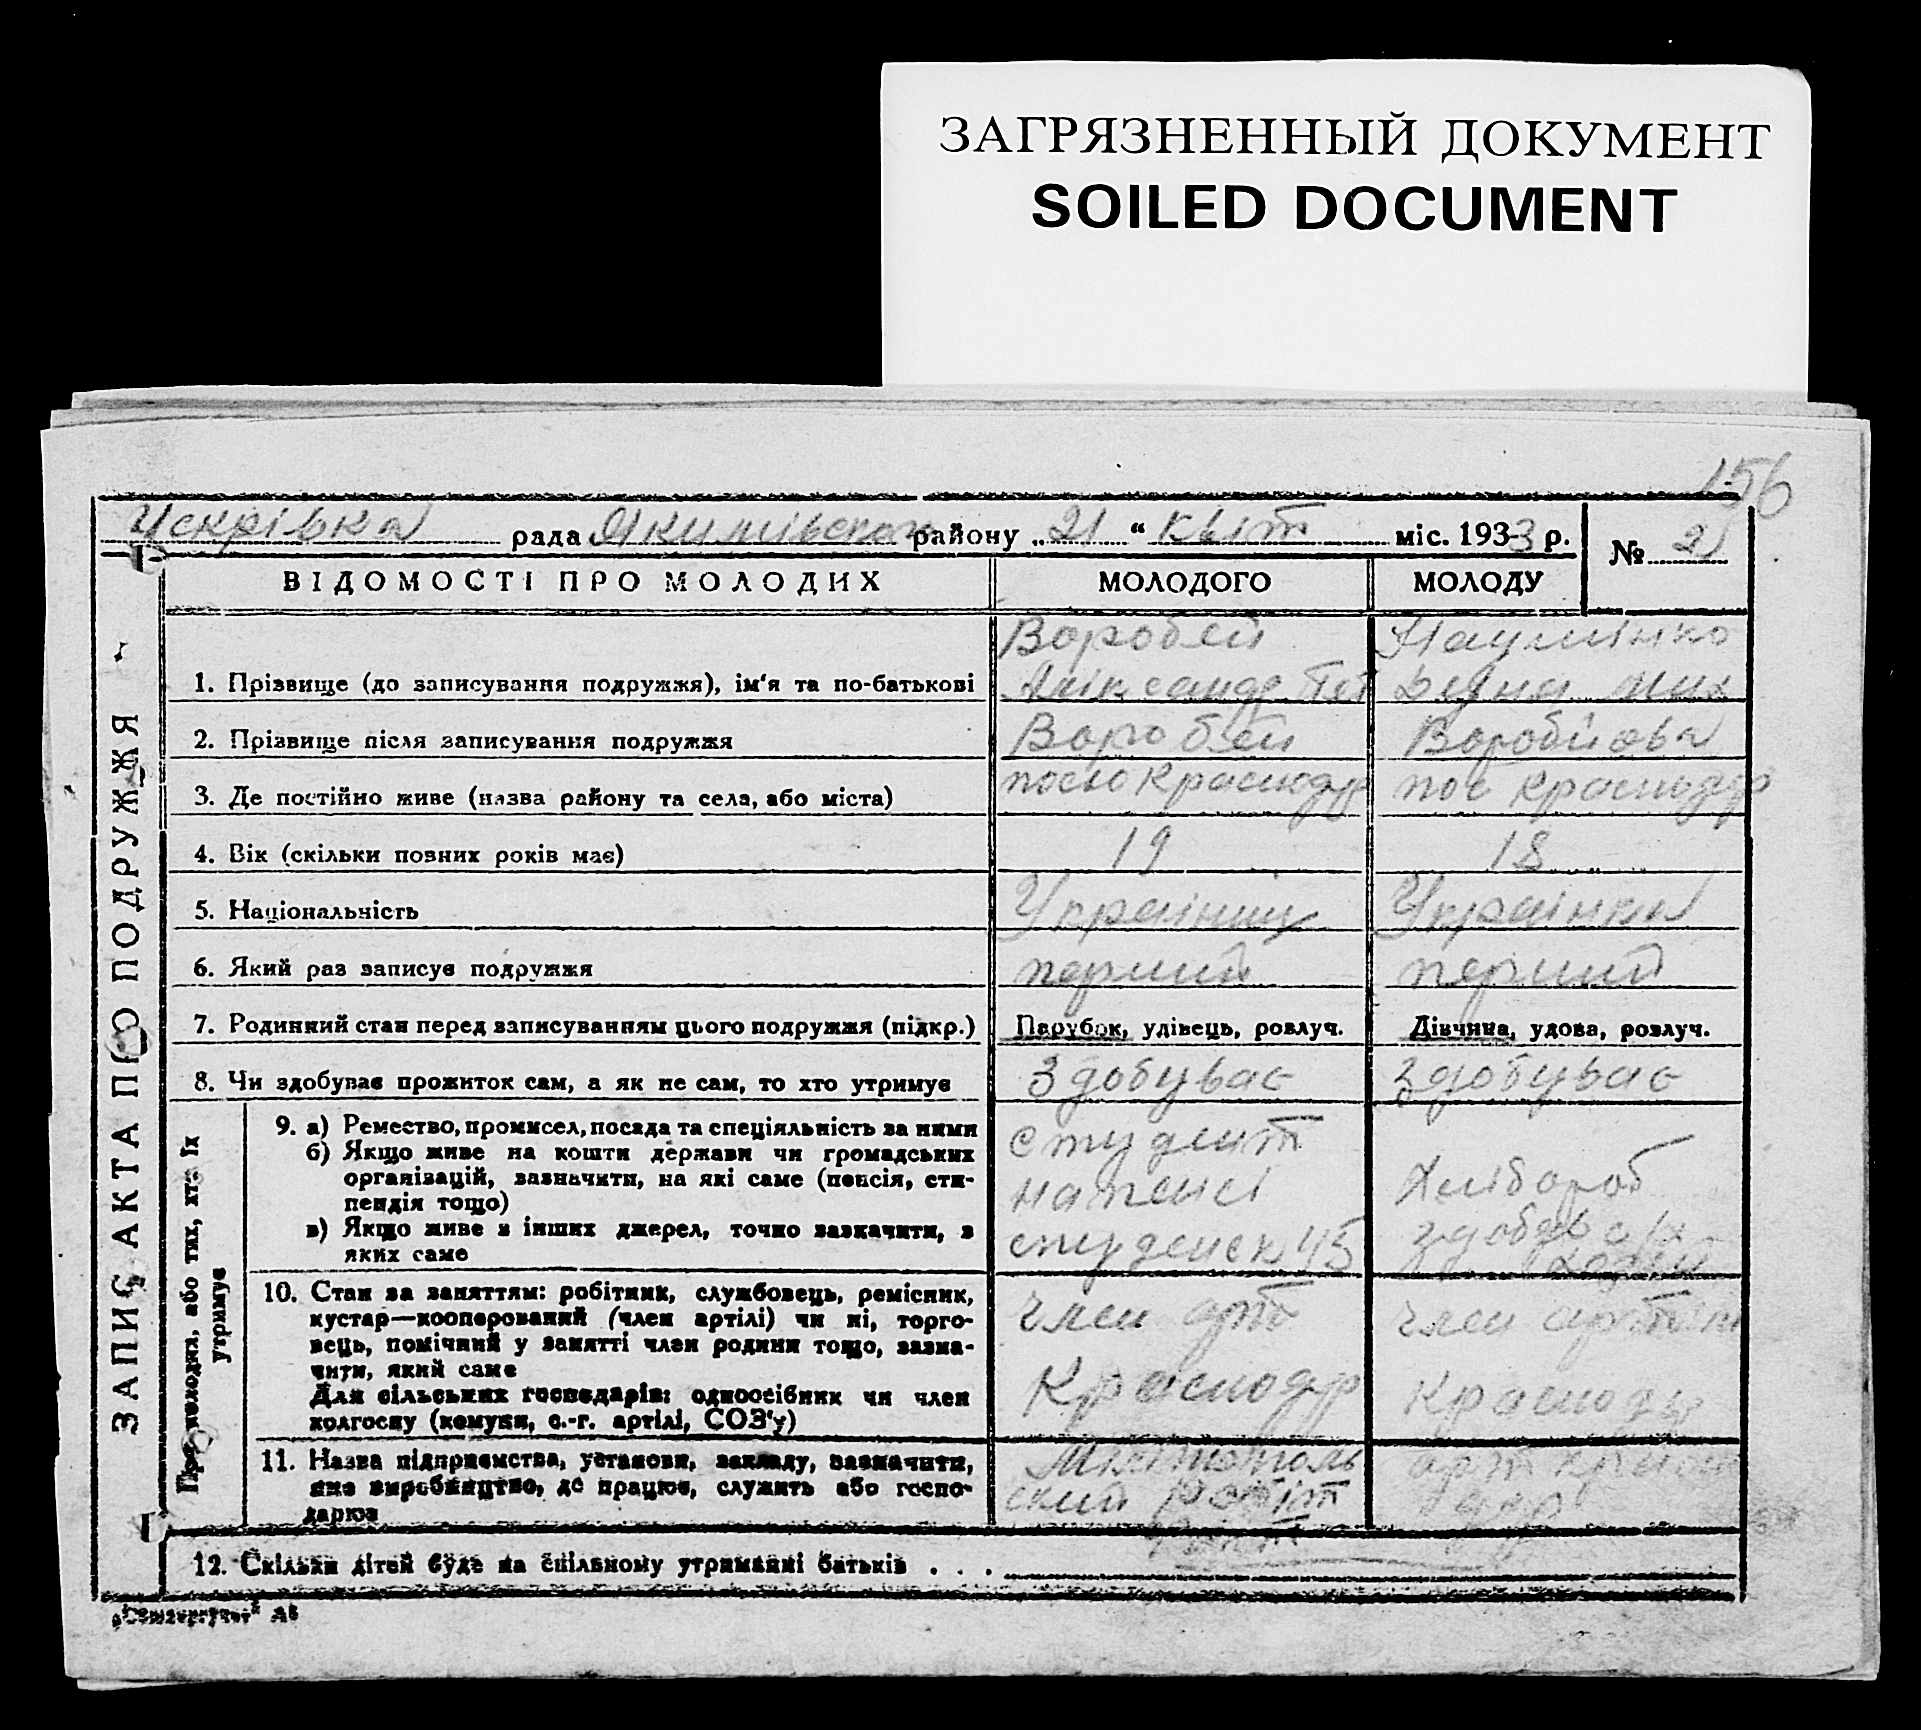 ЗАГРЯЗНЕННЫЙ ДОКУМЕНТ
SOILED DOCUMENT
156
Искрівка рада Якимівськ району „21“ Квіт міс. 1933 р. № 21
ЗАПИС АКТА ПРО ПОДРУЖЖЯ
ВІДОМОСТІ ПРО МОЛОДИХ МОЛОДОГО МОЛОДУ
Воробей Наумінко
1. Прізвище (до записування подружжя), ім'я та по-батькові Аліксандр
2. Прізвище після записування подружжя Воробей Воробйова
3. Де постійно живе (назва району та села, або міста)
4. Вік (скільки повних років має) 19 18
5. Національність Українец Українка
6. Який раз записує подружжя перший перший
7. Родинний стан перед записуванням цього подружжя (підкр.) Парубок, удівець, розлуч. Дівчина, удова, розлуч.
8. Чи здобуває прожиток сам, а як не сам, то хто утримує Здобуває здобуває
Про молодих, або тих, хто їх утримує
9. а) Ремество, промисел, посада та спеціяльність за ними студент
б) Якщо живе на кошти держави чи громадських
організацій, вазначити, на які саме (пенсія, сти- на пенсі Хлібороб
пендія тощо)
в) Якщо живе з інших джерел, точно зазначити, з
яких саме
10. Стан за заняттям: робітник, службовець, ремісник, член арт член артіли
кустар—кооперований (член артілі) чи ні, торго-
вець, помічний у занятті член родини тощо, зазна-
чити, який саме Краснодр
Для сільських господарів: одноосібник чи член
колгоспу (комуни, с.-г. артілі, СОЗ'у)
11. Назва підприємства, установи, закладу, зазначити, арт
яке виробництво, де працює, служить або госпо- ский
дарює
12. Скільки дітей буде на спільному утриманні батьків . . .